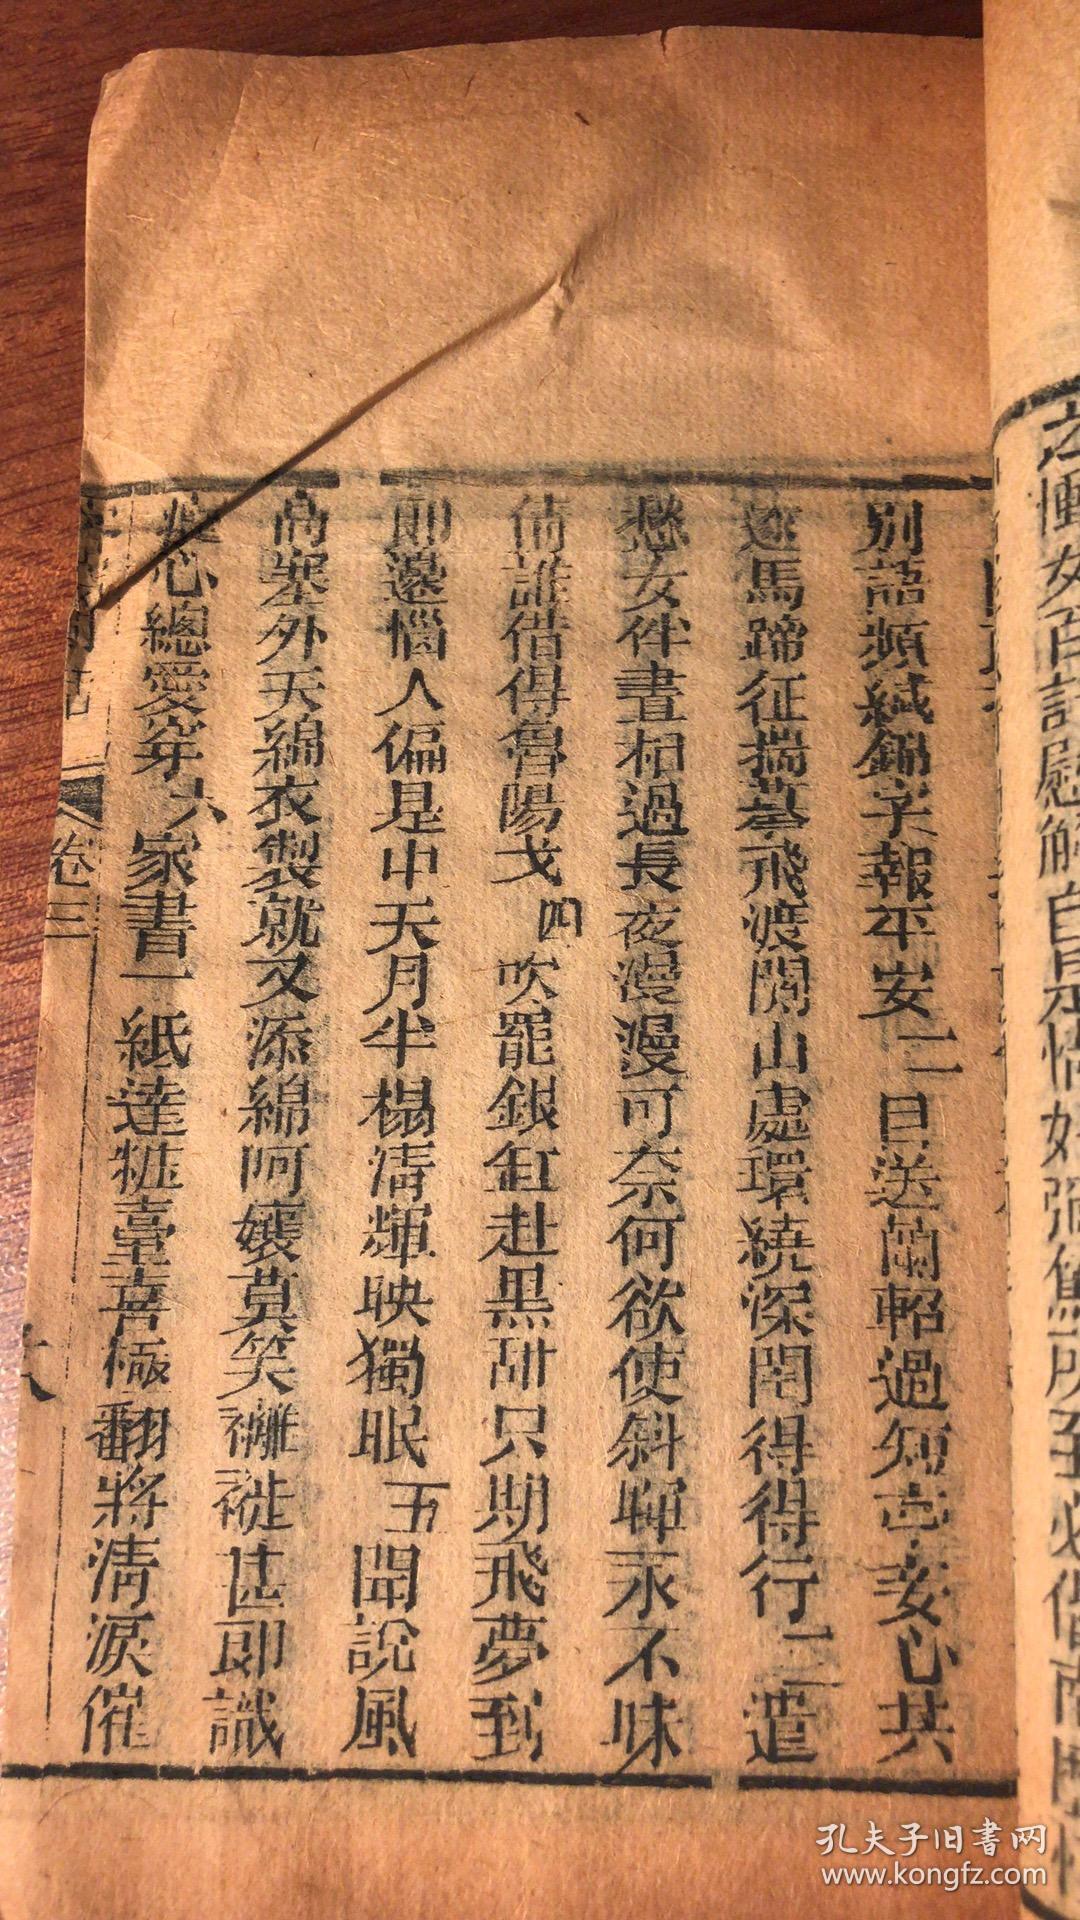 之慟女百計慰解自
別語頻緘錦字報平安 二 目送蘭軺過短亭妾心共
逐馬蹄征揣摹飛渡關山處環繞深閨得得行 三 遣
愁女伴晝相過長夜漫漫可奈何欲使斜暉永不昧
倩誰借得魯陽戈 四 吹罷銀缸赴黑甜只期飛夢到
郎邊惱人偏是中天月半榻清輝映獨眠 五 聞說風
高塞外天綿衣製就又添綿阿孃莫笑褦襶甚郎識
痴心總愛穿 六 家書一紙達粧臺喜極翻將清淚催
卷三
六
孔夫子旧書网
www.kongfz.com